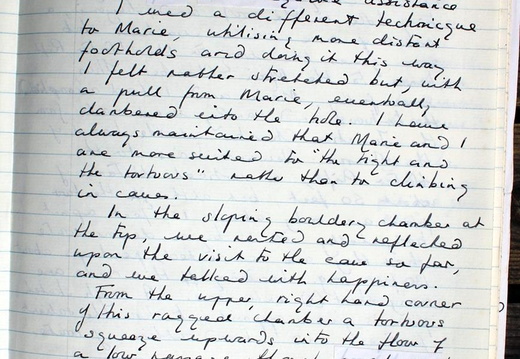 assistance
I used a different technique
to Marie, utilising more distant
footholds and doing it this way
I felt rather stretched but, with
a pull from Marie, eventually
clambered into the hole. I have
always maintained that Marie and I
are more suited to "the tight and
the tortuous" rather than to climbing
in caves.
In the sloping bouldery chamber at
the top, we rested and reflected
upon the visit to the cave so far,
and we talked with happiness.
From the upper, right hand corner
of this ragged chamber a tortuous
squeeze upwards into the floor of
a low passage